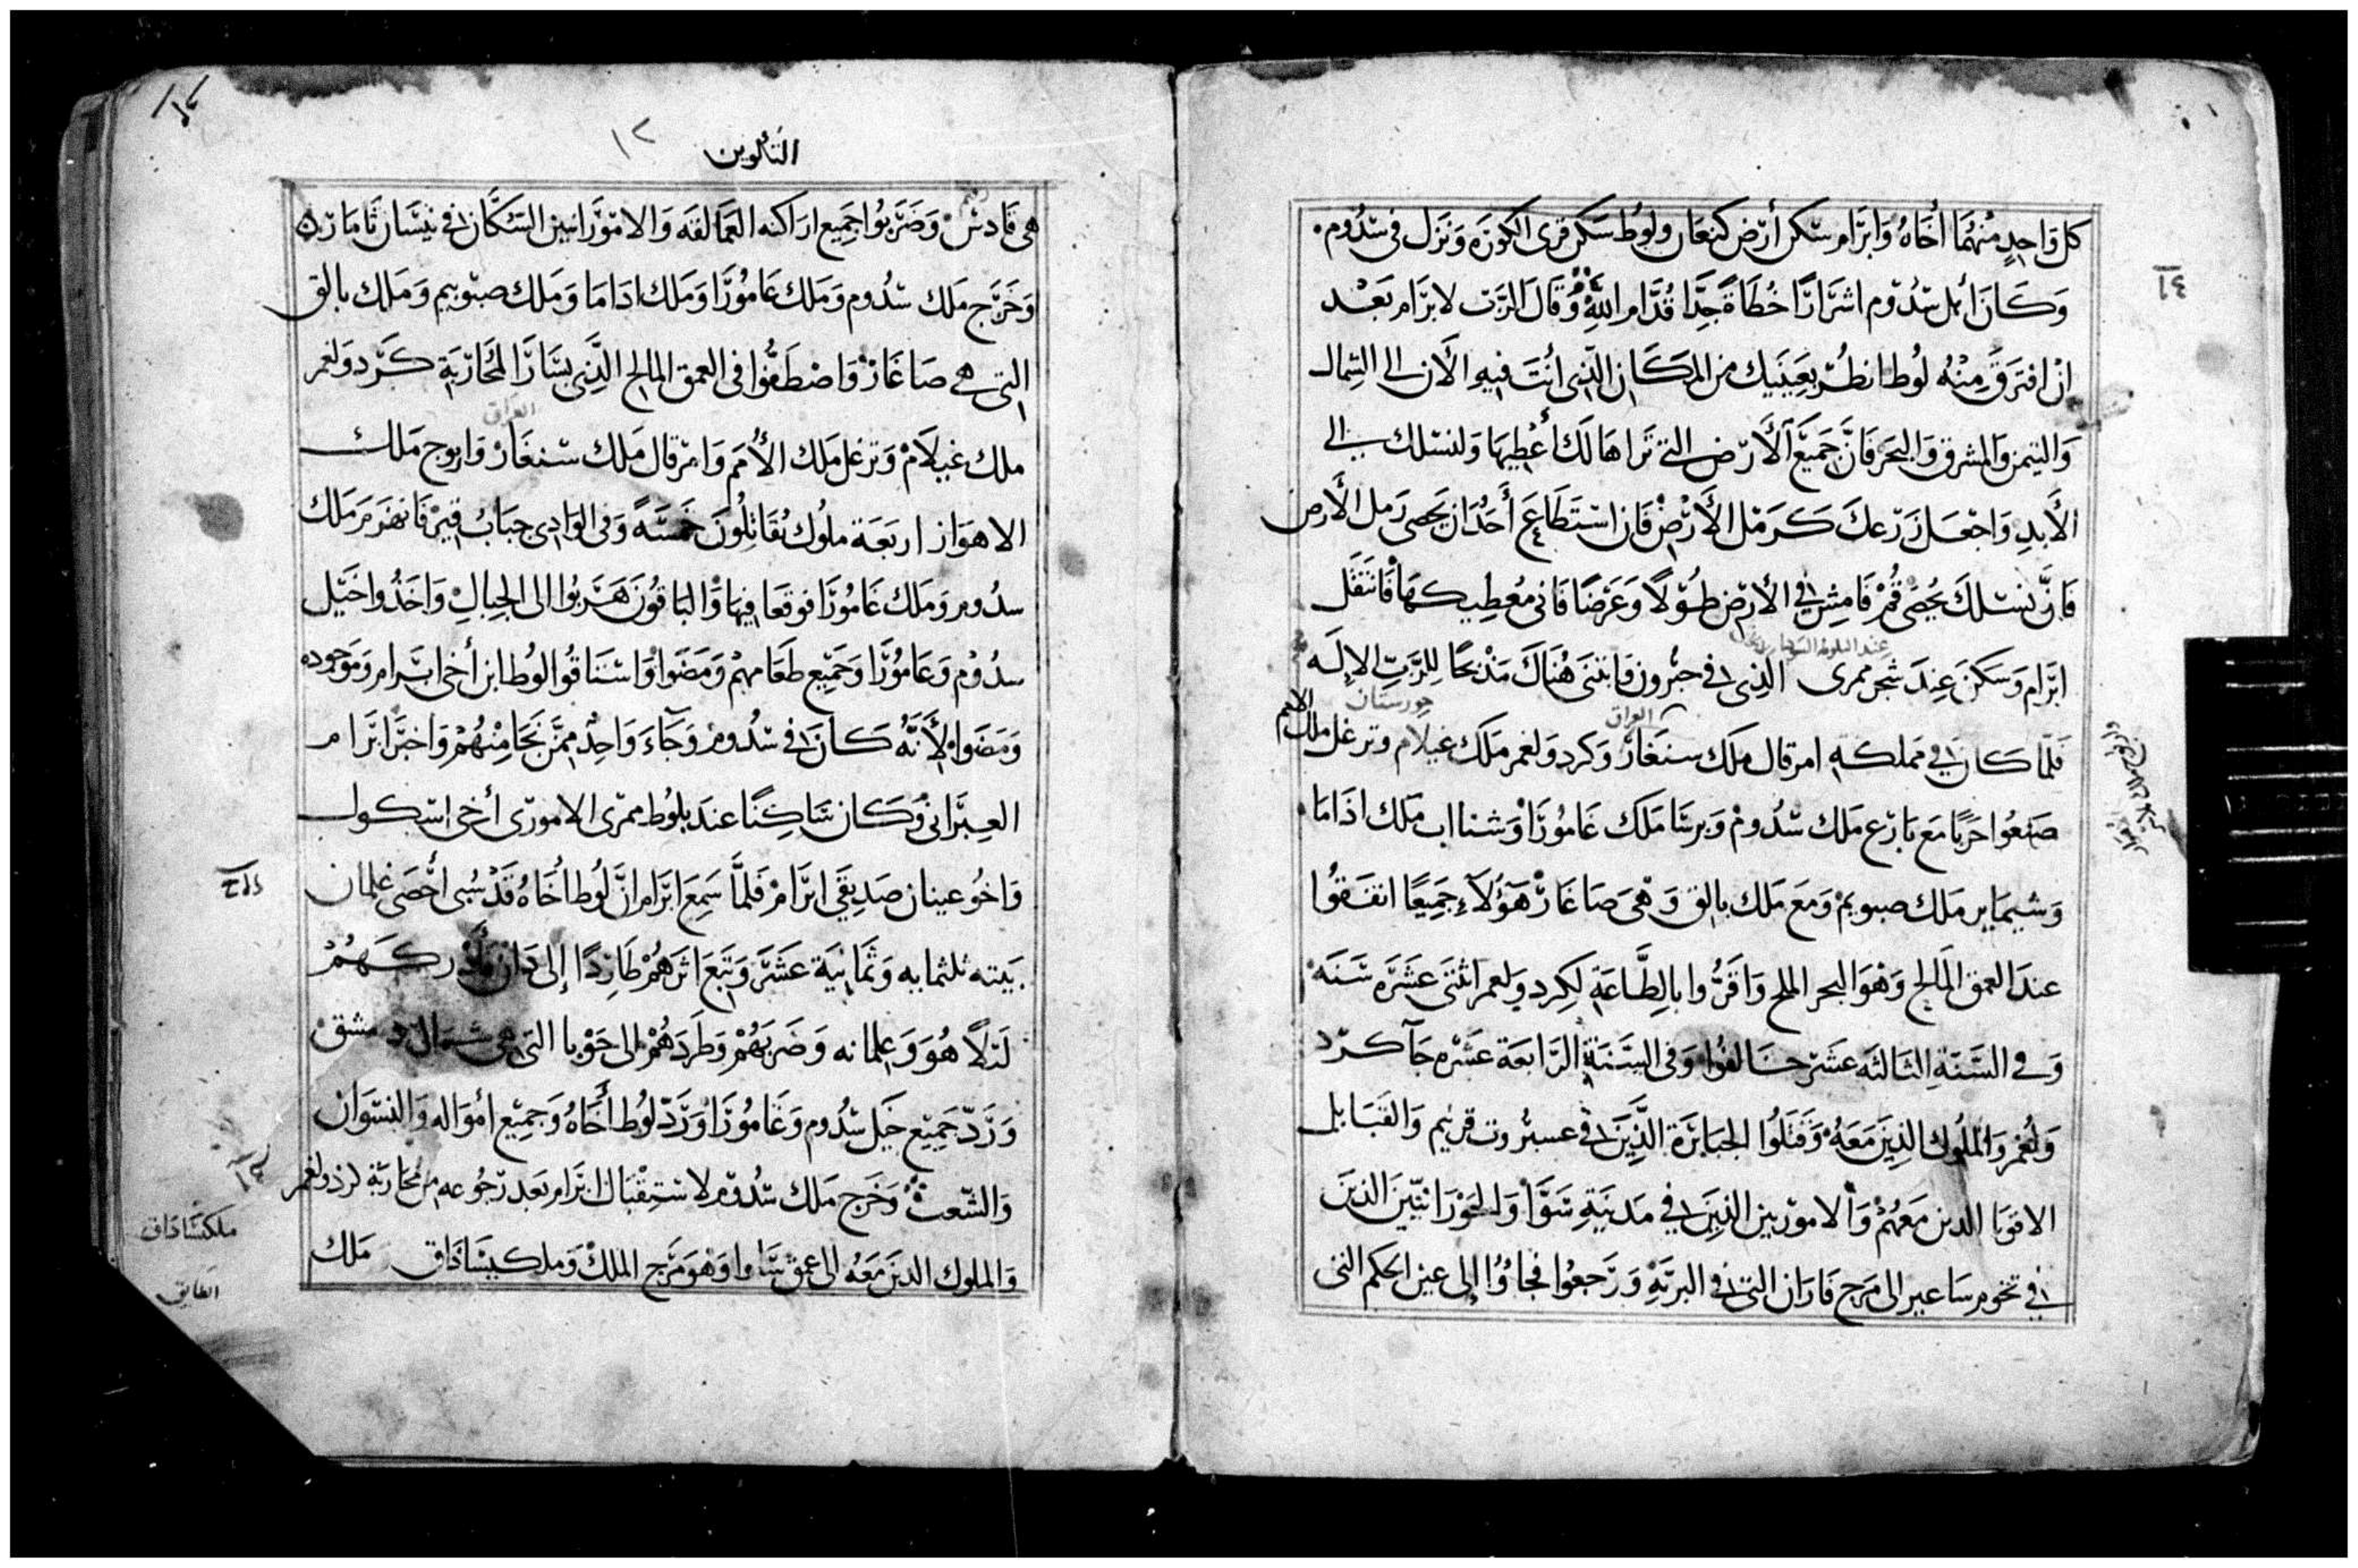 كل وَاحِدٍ مِنْهُمَا أَخَاهُ وَابرَام سَكن أرْض كنعَان ولوُط سَكن قرى الكورَه وَنزَل في سدُوم
وَكَانَ أهل سدُوم اشرَارًا خُطَاةً جِدًّا قُدَّام اللهِ وَقَالَ الرَّب لابرَام بَعْد
انْ افترَقَ مِنْهُ لوُط انظُر بِعَينَيك مِن المَكَان الَّذِي أنتَ فيهِ الآن الى الشِمال
وَالتيمن والمشرق وَالبحَر فَانَّ جَميَع الأرْض التي تَرَاهَا لَكَ أعْطِيهَا وَلنسْلك الى
الأَبدِ وَاجْعَل زَرْعكَ كَرَمْل الأَرْضْ فَان اسْتَطَاعَ أَحَدٌ ان يَحصى رَمل الأَرض
فَانَّ نسْلكَ يحُصى قُمْ فَامشِ في الأرْض طُوْلًا وَعَرْضًا فَاني مُعطِيكهَا فَانتَقَل
عند البلوطه
ابرَام وَسَكَن عِندَ شجر ممرى الَّذِي في حبرُون وَابتنَى هُنَاكَ مَذْبحًا لِلرَّبّ الإلَه
العراق
خورستان
فَلمَّا كَان في مملكته امرقال مَلكَ سنغَار وَكرد ولعمر مَلكَ عيلام وترغل ملك الامم
صَنعُوا حَربًا مَع بَارَع مَلك سدُومْ وَبرسَا مَلَك غَامُورَا وَشنااب مَلك اذَامَا
وَشيمَابر مَلك صبويمْ وَمعَ مَلك بالق وَهيَ صَاغَارْ هَؤلآءِ جَمِيعًا اتفَقُوا
عندَ العمق المَالح وَهْوَ البحر الملح وَاقرُّوا بالِطَّاعَةِ لِكرد ولعمر اثنتَى عَشَرَه سَنَه
وَفي السَنَة الثالثَه عَشَر خَالفُوا وَفي السَنَة الرَابعَة عَشرَه جَآ كرد
وَلعُمر وَالملُوك الذِينَ مَعَهُ وَقتلُوا الجبَابرَة الَّذِينَ في عستروت قرنيم وَالقبَايل
الاقويَا الدين مَعهُمْ وَالاموريين الذِيَن في مَدينَةِ سَوَا وَالحوْرَانيّينَ الذينَ
في تخوم سَاعير الى مَرج فَارَان التي في البريَّةِ وَرَجعُوا فجاؤُا إلى عين الحكم التي
١٢
التكوين
هي قَادسْ وَضَرَبوُا جميع اراكنه العَمَالقَه وَالامورَانيين السُكَّان في نيسَان ثَامَارَه
وَخَرَج مَلك سدُوم وَمَلك عَامُورَا وَمَلك ادَامَا وَمَلك صبوييم وَمَلك بالق
التي هي صَاغَارْ وَاصْطَفُّوا في العمق المالح الَّذِي بسَارَ المُحَارَبَة كَرَد ولعمر
العراق
ملك عَيلَامْ وَترغل مَلك الأُمَم وَامْرقال مَلك سنغَارْ وَاريوج مَلك
الاهوَاز اربَعَة ملُوك نُقَاتلُونَ خمسَةً وَفي الوَادِي جبَابُ قيْر فَانهزمَ مَلك
سدُوم وَمَلك غَامُورَا فوقعَا فيهَا وَالبَاقُونَ هَرَبوا الى الجِبَالِ وَاخَذُوا خَيْل
سدُوْم وَعَامُوْرَا وَجَميْع طعَامهمْ وَمَضَوْا وَاسْتَاقُوا لوُطا ابن أخى ابرام وَمَوجوده
وَمَضَوا لأَنَّهُ كَانَ في سدُوم وَجَآءَ وَاحِدٌ مِمَّن نَجَا مِنْهُمْ وَاخبَر ابرَام
العِبرَاني وَكَان سَاكِنًا عندَ بلوُط ممرى الامورى أخى اسكول
وَاخوُ عينان صَدِيقَي ابرَامْ فَلمَّا سَمِع ابرَام انَّ لوُطا أخَاهُ قَدْ سُبى أحْصَى غلمان
بَيته ثلثمايه وَثمَانِيَة عَشَر وَتبعَ اثرَهُمْ طَارِدًا إلى دَان وَأدْركَهُمْ
لَيْلًا هُوَ وَغلمانه وَضَرَبَهُمْ وَطَرَدَهُمْ الى حَوْبا التي هي شمال دمشق
وَرَدّ جَميْع خَيل سدُوم وَغَامُورَا وَرَدّ لوُطا أخَاهُ وَجميْع أموَاله وَالنسوَان
وَالشَعب وَخَرج مَلك سدُوم لاستِقْبَال ابرَام بَعد رجُوعه من محَارَبة كرد ولعمر
وَالملوك الدينَ مَعَهُ الى عمق سَاوا وَهْوَ مَرج الملكْ وَملكيسَادَاق مَلك
ملكيسَادَاق